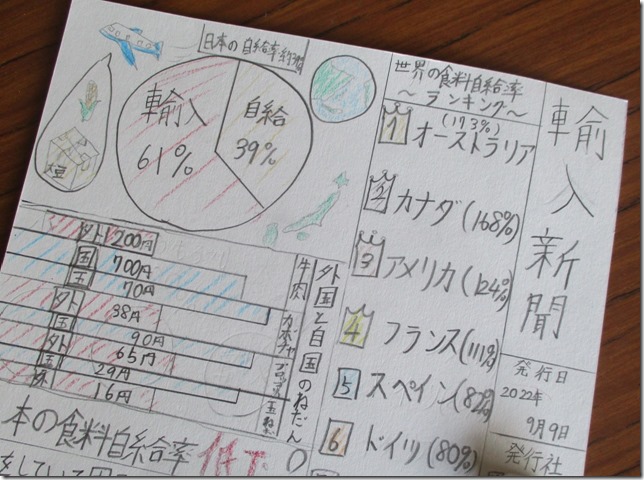 輸入新聞
発行日
2022年
9月9日
発行社
世界の食料自給率
～ランキング～
(173%)
1 オーストラリア
2 カナダ(168%)
3 アメリカ(124%)
4 フランス(111%)
5 スペイン(82%)
6 ドイツ(80%)
日本の自給率
輸入
61%
自給
39%
大豆
外国と自国のねだん
牛肉
カボチャ
ブロッコリー
玉ねぎ
外 200円
国 700円
国 70円
外 38円
国 90円
外 65円
国 29円
外 16円
本の食料自給率
をしている